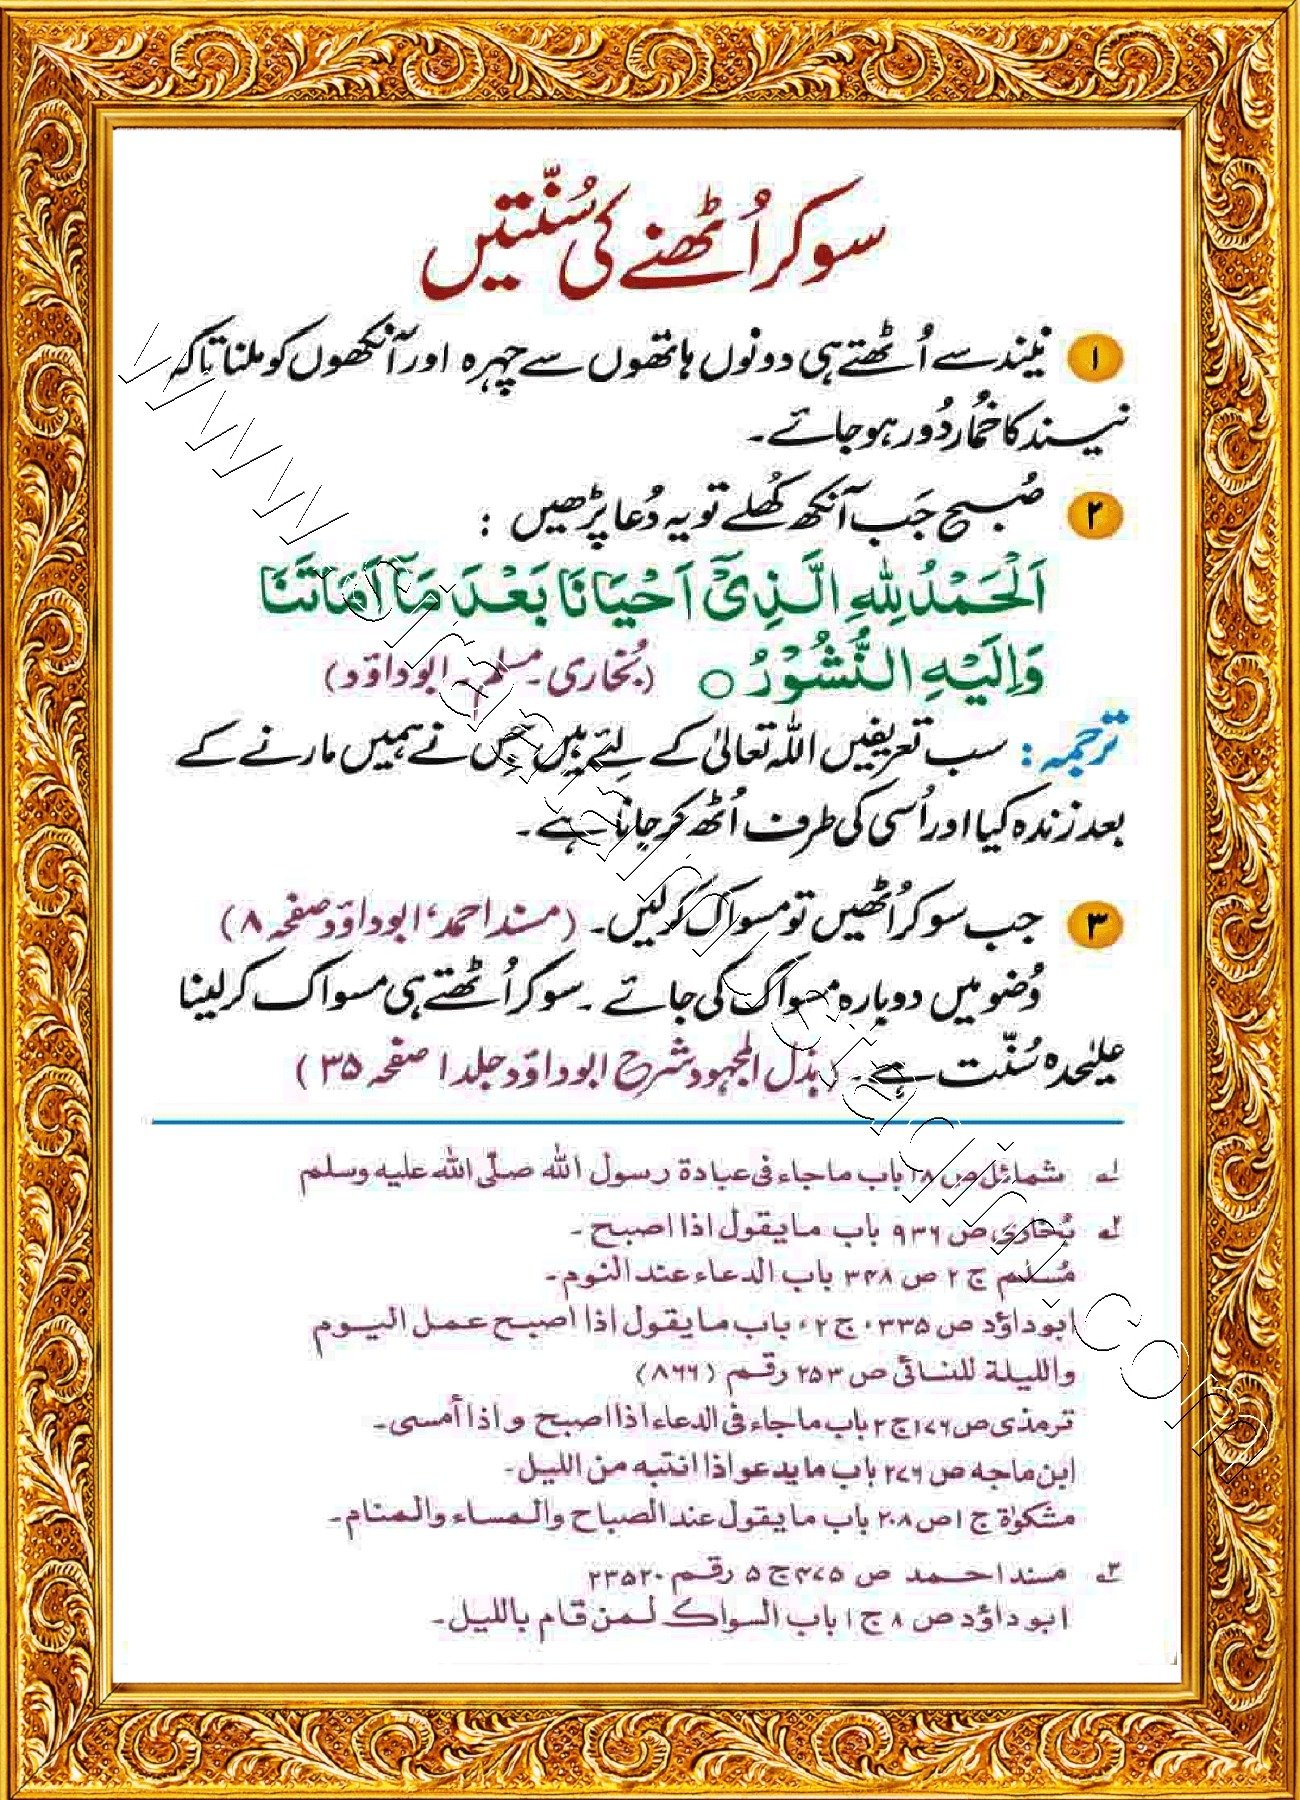 سو کر اُٹھنے کی سُنّتیں
۱ نیند سے اُٹھتے ہی دونوں ہاتھوں سے چہرہ اور آنکھوں کو ملنا تاکہ
نیند کا خُمار دُور ہو جائے۔
۲ صُبح جَب آنکھ کُھلے تو یہ دُعا پڑھیں :
اَلْحَمْدُ لِلّٰهِ الَّذِیْٓ اَحْیَانَا بَعْدَ مَآ اَمَاتَنَا
وَاِلَیْهِ النُّشُوْرُ ○ (بُخاری۔ مسلم۔ ابوداؤد)
ترجمہ : سب تعریفیں اللہ تعالیٰ کے لئے ہیں جِس نے ہمیں مارنے کے
بعد زندہ کیا اور اُسی کی طرف اُٹھ کر جانا ہے۔
۳ جب سو کر اُٹھیں تو مسواک کرلیں۔ (مسند احمد، ابوداؤد صفحہ ۸)
وُضو میں دوبارہ مسواک کی جائے ۔ سو کر اُٹھتے ہی مسواک کرلینا
علیٰحدہ سُنّت ہے۔ (بذل المجہود شرح ابوداؤد جلد ۱ صفحہ ۳۵)
۱ شمائل ص ۱۸ باب ماجاء فی عبادة رسول الله صلّی الله علیه وسلم
۲ بُخاری ص ۹۳۶ باب مایقول اذا اصبح ۔
مُسلم ج ۲ ص ۳۴۸ باب الدعاء عند النوم۔
ابوداؤد ص ۳۳۵، ج ۲، باب مایقول اذا اصبح عمل الیوم
واللیلة للنسائی ص ۲۵۳ رقم (۸۶۶)
ترمذی ص ۱۷۶ ج ۲ باب ماجاء فی الدعاء اذا اصبح و اذا أمسی۔
ابن ماجه ص ۲۷۶ باب مایدعو اذا انتبه من اللیل۔
مشکوٰة ج ۱ ص ۲۰۸ باب مایقول عند الصباح والمساء والمنام۔
۳ مسند احمد ص ۴۷۵ ج ۵ رقم ۲۳۵۲۰
ابوداؤد ص ۸ ج ۱ باب السواک لمن قام باللیل۔